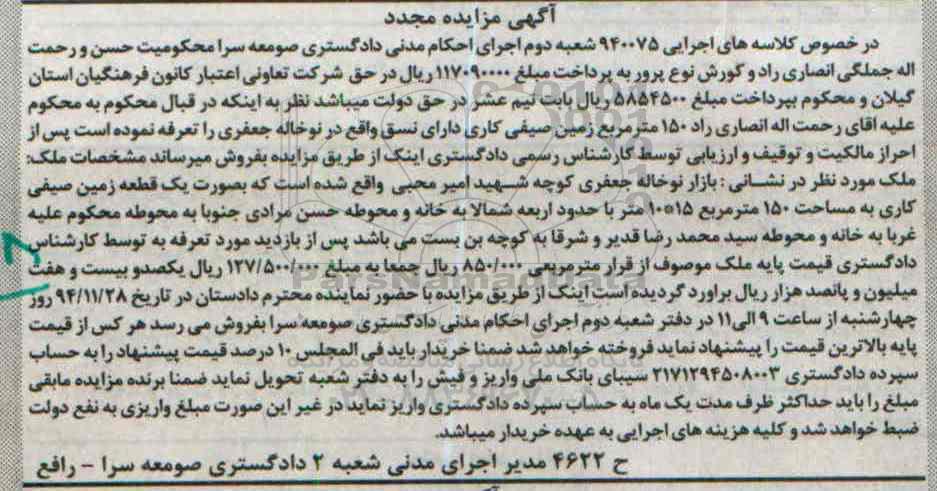 آگهی مزایده مجدد
در خصوص کلاسه های اجرایی ۹۴۰۰۷۵ شعبه دوم اجرای احکام مدنی دادگستری صومعه سرا محکومیت حسن و رحمت
اله جملگی انصاری راد و کورش نوع پرور به پرداخت مبلغ ۱۱۷۰۹۰۰۰۰ ریال در حق شرکت تعاونی اعتبار کانون فرهنگیان استان
گیلان و محکوم بپرداخت مبلغ ۵۸۵۴۵۰۰ ریال بابت نیم عشر در حق دولت میباشد نظر به اینکه در قبال محکوم به محکوم
علیه اقای رحمت اله انصاری راد ۱۵۰ مترمربع زمین صیفی کاری دارای نسق واقع در نوخاله جعفری را تعرفه نموده است پس از
احراز مالکیت و توقیف و ارزیابی توسط کارشناس رسمی دادگستری اینک از طریق مزایده بفروش میرساند مشخصات ملک:
ملک مورد نظر در نشانی : بازار نوخاله جعفری کوچه شهید امیر محبی واقع شده است که بصورت یک قطعه زمین صیفی
کاری به مساحت ۱۵۰ مترمربع ۱۵*۱۰ متر با حدود اربعه شمالا به خانه و محوطه حسن مرادی جنوبا به محوطه محکوم علیه
غربا به خانه و محوطه سید محمد رضا قدیر و شرقا به کوچه بن بست می باشد پس از بازدید مورد تعرفه به توسط کارشناس
دادگستری قیمت پایه ملک موصوف از قرار مترمربعی ۸۵۰/۰۰۰ ریال جمعا به مبلغ ۱۲۷/۵۰۰/۰۰۰ ریال یکصدو بیست و هفت
میلیون و پانصد هزار ریال براورد گردیده است اینک از طریق مزایده با حضور نماینده محترم دادستان در تاریخ ۹۴/۱۱/۲۸ روز
چهارشنبه از ساعت ۹ الی ۱۱ در دفتر شعبه دوم اجرای احکام مدنی دادگستری صومعه سرا بفروش می رسد هر کس از قیمت
پایه بالاترین قیمت را پیشنهاد نماید فروخته خواهد شد ضمنا خریدار باید فی المجلس ۱۰ درصد قیمت پیشنهاد را به حساب
سپرده دادگستری ۲۱۷۱۲۹۴۵۰۸۰۰۳ سیبای بانک ملی واریز و فیش را به دفتر شعبه تحویل نماید ضمنا برنده مزایده مابقی
مبلغ را باید حداکثر ظرف مدت یک ماه به حساب سپرده دادگستری واریز نماید در غیر این صورت مبلغ واریزی به نفع دولت
ضبط خواهد شد و کلیه هزینه های اجرایی به عهده خریدار میباشد.
ح ۴۶۲۲ مدیر اجرای مدنی شعبه ۲ دادگستری صومعه سرا - رافع
ParsNamadData